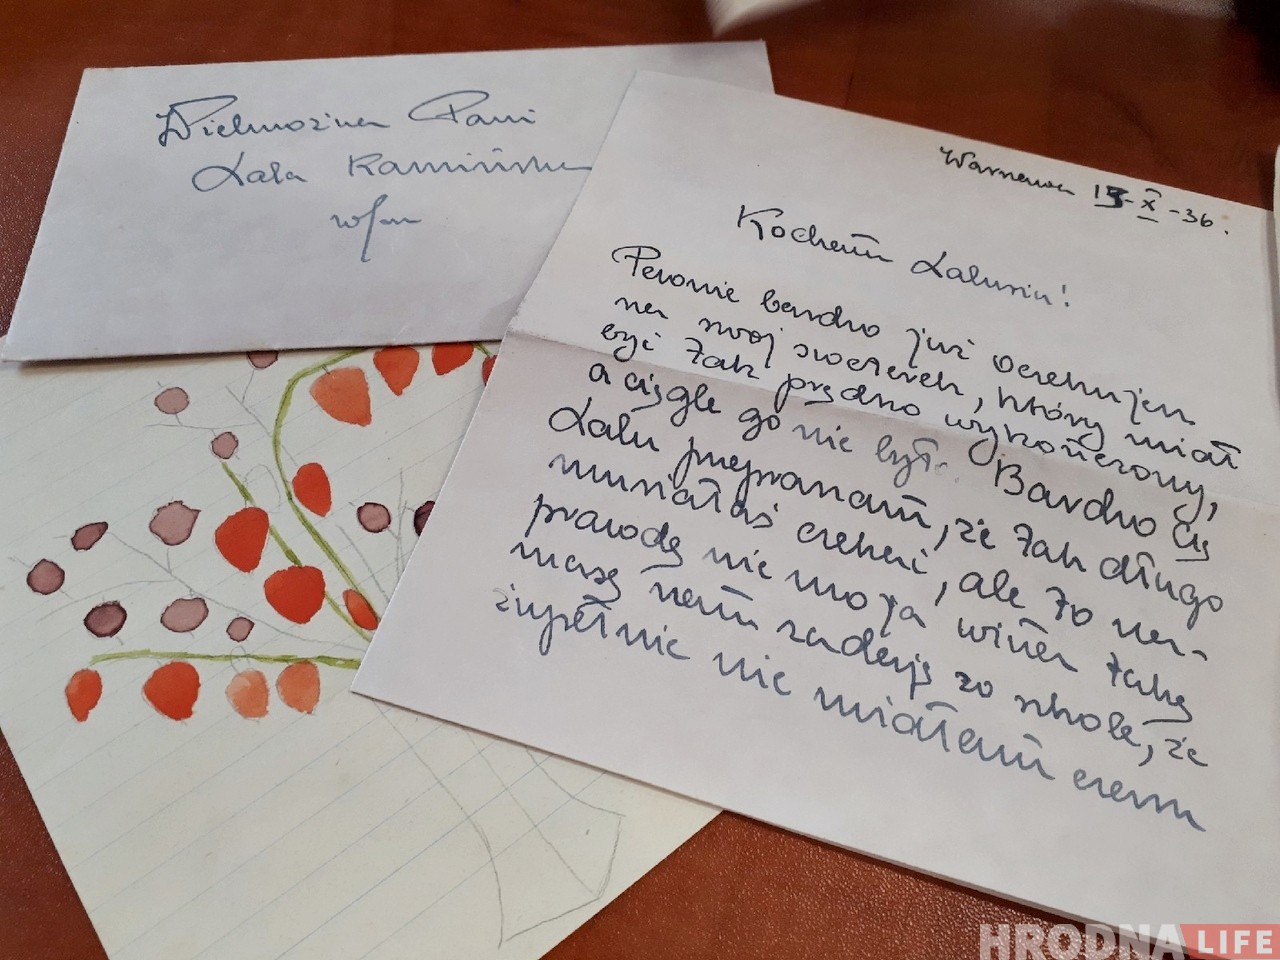 Wielmożna Pani
Lala Kamińska
Warszawa 15-X-36.
Kochana Lalusiu!
Pewnie bardzo już oczekujesz
na swój sweterek, który miał
być tak prędko wykończony,
a ciągle go nie było. Bardzo Cię
Lalu przepraszam, że tak długo
musiałaś czekać, ale to na-
prawdę nie moja wina taką
masę nam zadają w szkole, że
zupełnie nie miałam czasu
HRODNA LIFE